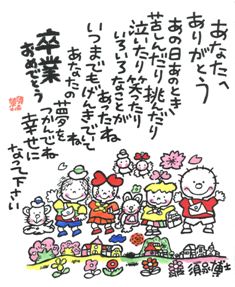 あなたへ
ありがとう
あの日あのとき
苦しんだり挑んだり
泣いたり笑ったり
いろいろなことが
あったね
いつまでもげんきでいてね
あなたの夢を
つかんでね
幸せに
なって下さい
卒業
おめでとう